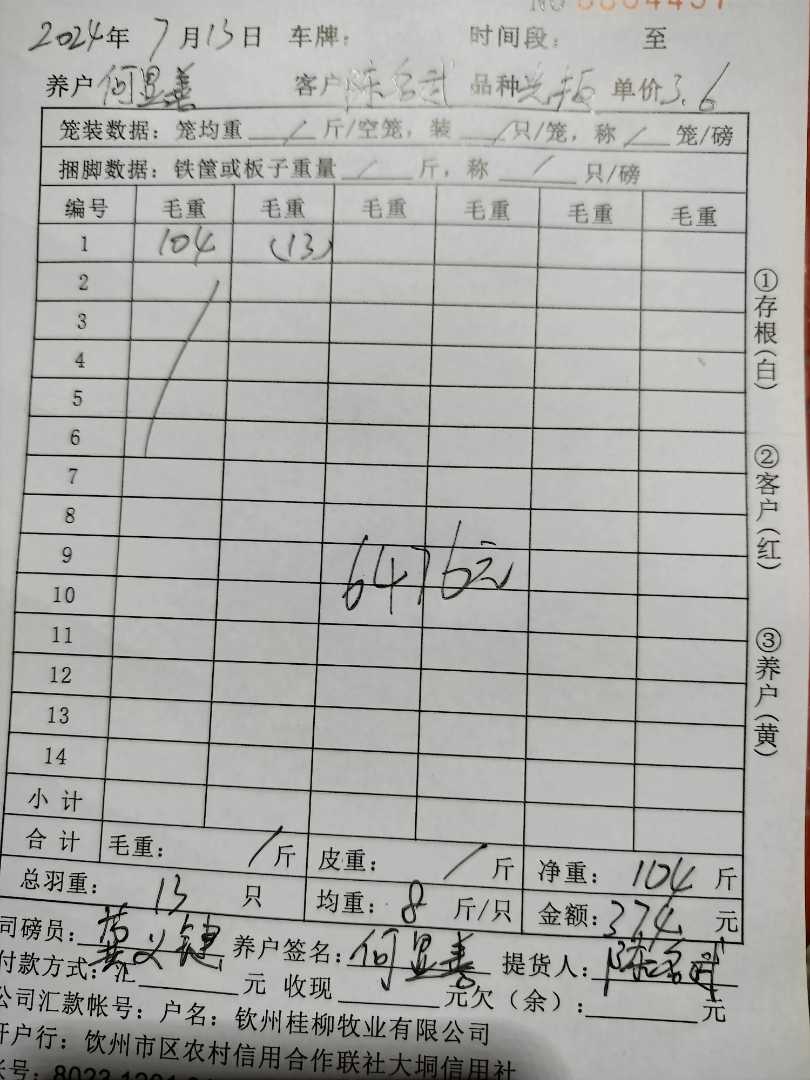 2024年 7月13日 车牌: 时间段: 至
养户 何显善 客户 陈名武 品种 单价 3.6
笼装数据: 笼均重 / 斤/空笼, 装 / 只/笼, 称 / 笼/磅
捆脚数据: 铁筐或板子重量 / 斤, 称 / 只/磅
编号 毛重 毛重 毛重 毛重 毛重 毛重
1 104 (13)
2
3
4
5
6
7
8
9
6476元
10
11
12
13
14
小计
合计 毛重: / 斤 皮重: / 斤 净重: 104 斤
总羽重: 13 只 均重: 8 斤/只 金额: 374 元
司磅员: 黄义键 养户签名: 何显善 提货人: 陈名武
付款方式: 汇 元 收现 元欠(余): 元
公司汇款帐号: 户名: 钦州桂柳牧业有限公司
开户行: 钦州市区农村信用合作联社大垌信用社
帐号: 8023
①存根(白)
②客户(红)
③养户(黄)